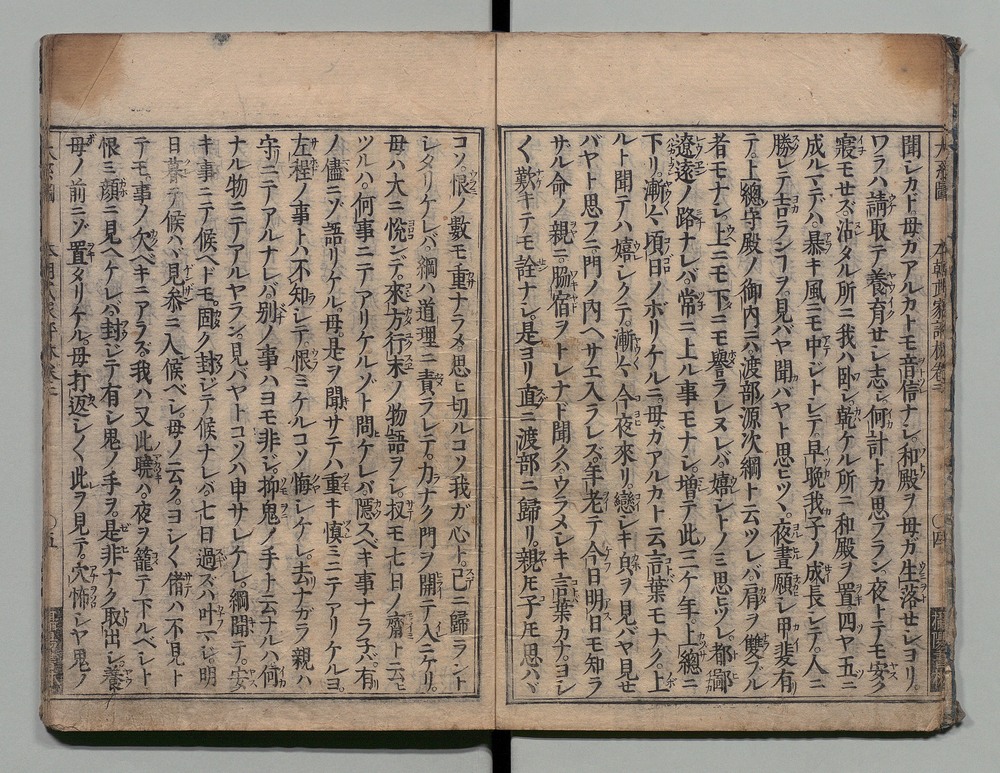 聞シカド母ガアルカトモ音信ナシ。和殿ヲ母ガ生落セシヨリ。
ワラハ請取テ養育セシ志シ何計トカ思フラン。夜トテモ安ク
寢モせズ。沾タル所ニ我ハ卧シ乾ケル所ニ和殿ヲ置四ヤ五ニ
成ルマデハ。恭キ風ニモ中シトシテ早晩我子ノ成長シテ。人ニ
勝レテ吉ランコヲ。見バヤ聞バヤト思ニツヽ。夜晝願シ甲斐有
テ。上總守殿ノ御内ニ。渡部源次綱ト云ツレバ。肩ヲ雙ブル
者モナシ。上ニモ下ニモ譽ラレヌレバ。嬉シトノミ思ヒツレ。都鄙
遼遠ノ路ナレバ。常ニ上ル事モナシ。增テ此三ケ年。上總ニ
下リ。漸ク頃日ノボリケルニ。母ガアルカト云言葉モナク。上
ルト聞テハ嬉シクテ。漸〱今夜來リ。戀シキ皃ヲ見バヤ見せ
バヤト思フニ門ノ内ヘサエ入ラレズ。年老テ今日明日モ知ラ
サル命ノ親ニ。脇宿ヲトレナド聞クハ。ウラメシキ言葉カナ。ヨシ
〱歎キテモ詮ナシ。是ヨリ直ニ渡部ニ歸リ。親トモ子トモ思ハヾ
コソ。恨ノ數モ重ナラメ思ヒ切ルコソ我ガ心ト。已ニ歸ラント
シタリケレバ。綱ハ道理ニ責ラレテ。力ナク門ヲ開テ入ニケリ。
母ハ大ニ悅デ。來方行末ノ物語ヲシ。扨モ七日ノ齋ト云ヒ
ツルハ。何事ニテアリケルゾト問ケレバ。隱スベキ事ナラ子バ。有
ノ儘ニゾ語リケル。母是ヲ聞サテハ重キ愼ミニテアリケルヨ。
左程ノ事トハ不知シテ。恨ミケルコソ悔シケレ。去ナガラ親ハ
守ニテアルナレバ。別ノ事ハヨモ非ジ。抑鬼ノ手ト云ナルハ何
ナル物ニテアルヤラン。見バヤトコソハ申サレケレ。綱聞テ。安
キ事ニテ候ヘドモ。固ク封ジテ候ナレバ。七日過ズハ叶マジ。明
日暮テ候ハヾ見參ニ入候ベシ。母ノ云ク。ヨシ〱偖ハ不見ト
テモ。事ノ欠ベキニアラズ。我ハ又此曉ハ。夜ヲ籠テ下ルベシト
恨ミ顔ニ見ヘケレバ。封ジテ有シ鬼ノ手ヲ。是非ナク取出シ。養
母ノ前ニゾ置タリケル。母打返シ〱此ヲ見テ。穴怖シヤ鬼ノ